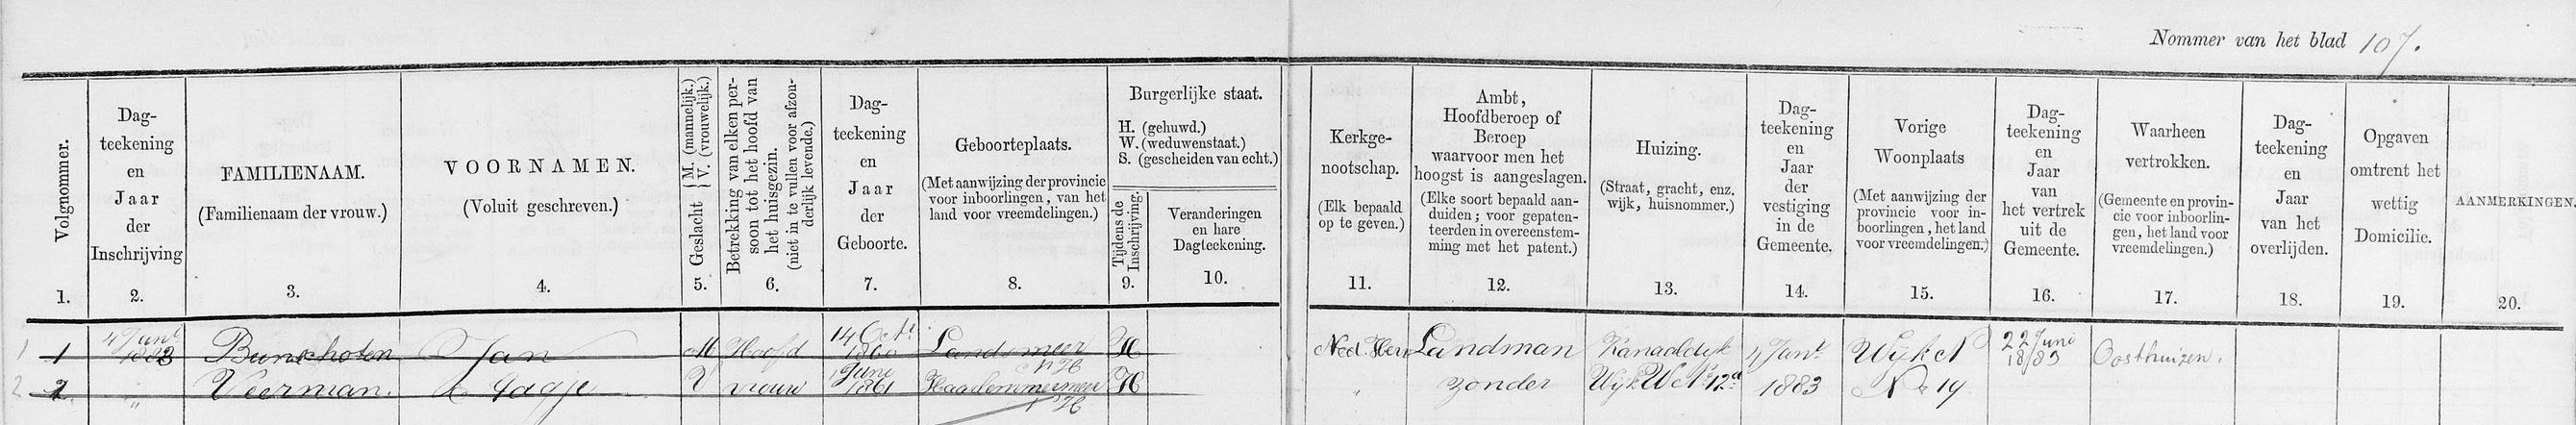 Nommer van het blad 107.
Volgnommer.
1.
Dag-
teekening
en
Jaar
der
Inschrijving
2.
FAMILIENAAM.
(Familienaam der vrouw.)
3.
VOORNAMEN.
(Voluit geschreven.)
4.
Geslacht { M. (mannelijk.)
V. (vrouwelijk.)
5.
Betrekking van elken per-
soon tot het hoofd van
het huisgezin.
(niet in te vullen voor afzon-
derlijk levende.)
6.
Dag-
teekening
en
Jaar
der
Geboorte.
7.
Geboorteplaats.
(Met aanwijzing der provincie
voor inboorlingen, van het
land voor vreemdelingen.)
8.
Burgerlijke staat.
H. (gehuwd.)
W. (weduwenstaat.)
S. (gescheiden van echt.)
Tijdens de
Inschrijving.
9.
Veranderingen
en hare
Dagteekening.
10.
Kerkge-
nootschap.
(Elk bepaald
op te geven.)
11.
Ambt,
Hoofdberoep of
Beroep
waarvoor men het
hoogst is aangeslagen.
(Elke soort bepaald aan-
duiden; voor gepaten-
teerden in overeenstem-
ming met het patent.)
12.
Huizing.
(Straat, gracht, enz.
wijk, huisnommer.)
13.
Dag-
teekening
en
Jaar
der
vestiging
in de
Gemeente.
14.
Vorige
Woonplaats
(Met aanwijzing der
provincie voor in-
boorlingen, het land
voor vreemdelingen.)
15.
Dag-
teekening
en
Jaar
van
het vertrek
uit de
Gemeente.
16.
Waarheen
vertrokken.
(Gemeente en provin-
cie voor inboorlin-
gen, het land voor
vreemdelingen.)
17.
Dag-
teekening
en
Jaar
van het
overlijden.
18.
Opgaven
omtrent het
wettig
Domicilie.
19.
AANMERKINGEN.
20.
1 1 4 Jan! 1883 Bunschoten Jan M Hoofd 14 Oct! 1860 Landsmeer NH H Ned Herv Landman Kanaaldijk 4 Jan! Wijk N 22 Juni 1883 Oosthuizen.
2 2 " Veerman. Aagje V vrouw 1 Juni 1861 Haarlemmermeer NH H " zonder Wijk W No 12a 1883 No 19